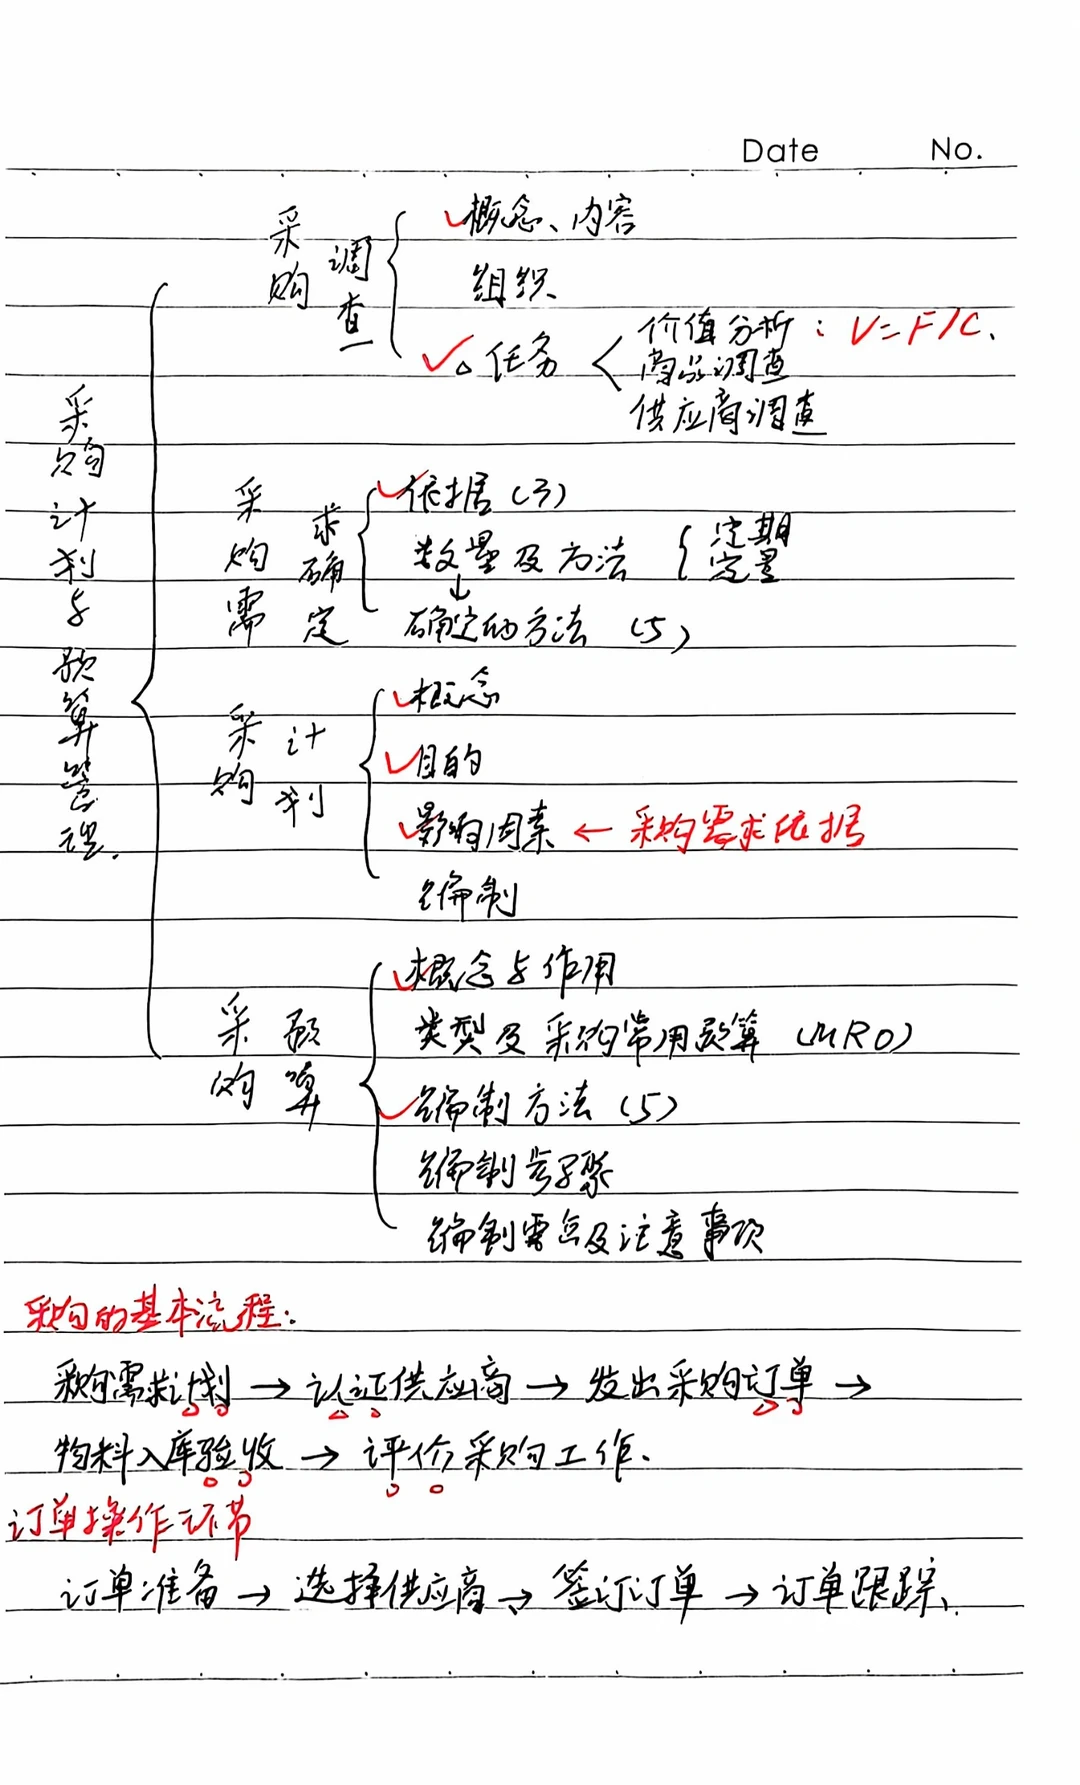 Date No.
采购计划与预算管理.
采购调查
概念、内容
组织
任务
价值分析：V=F/C、
商品调查
供应商调查
采购需求确定
依据（3）
数量及方法
定期
定量
↓
确定的方法（5）
采购计划
概念
目的
影响因素 ← 采购需求依据
编制
采购预算
概念与作用
类型及采购常用预算（MRO）
编制方法（5）
编制步骤
编制要点及注意事项
采购的基本流程：
采购需求计划 → 认证供应商 → 发出采购订单 →
物料入库验收 → 评价采购工作、
订单操作环节
订单准备 → 选择供应商 → 签订订单 → 订单跟踪、